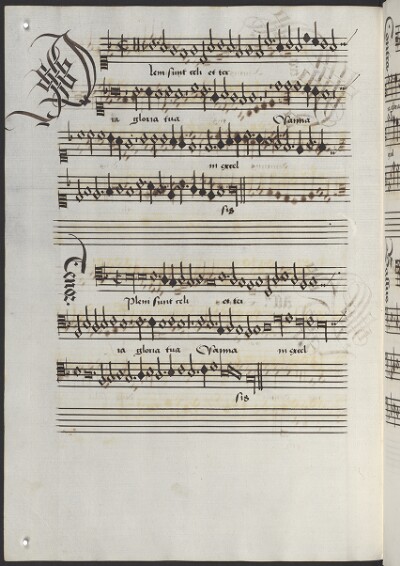 Pleni sunt celi et ter
ra gloria tua Osanna
in excel
sis
Tenor
Pleni sunt celi et ter
ra gloria tua Osanna in excel
sis
Contra
Bassus